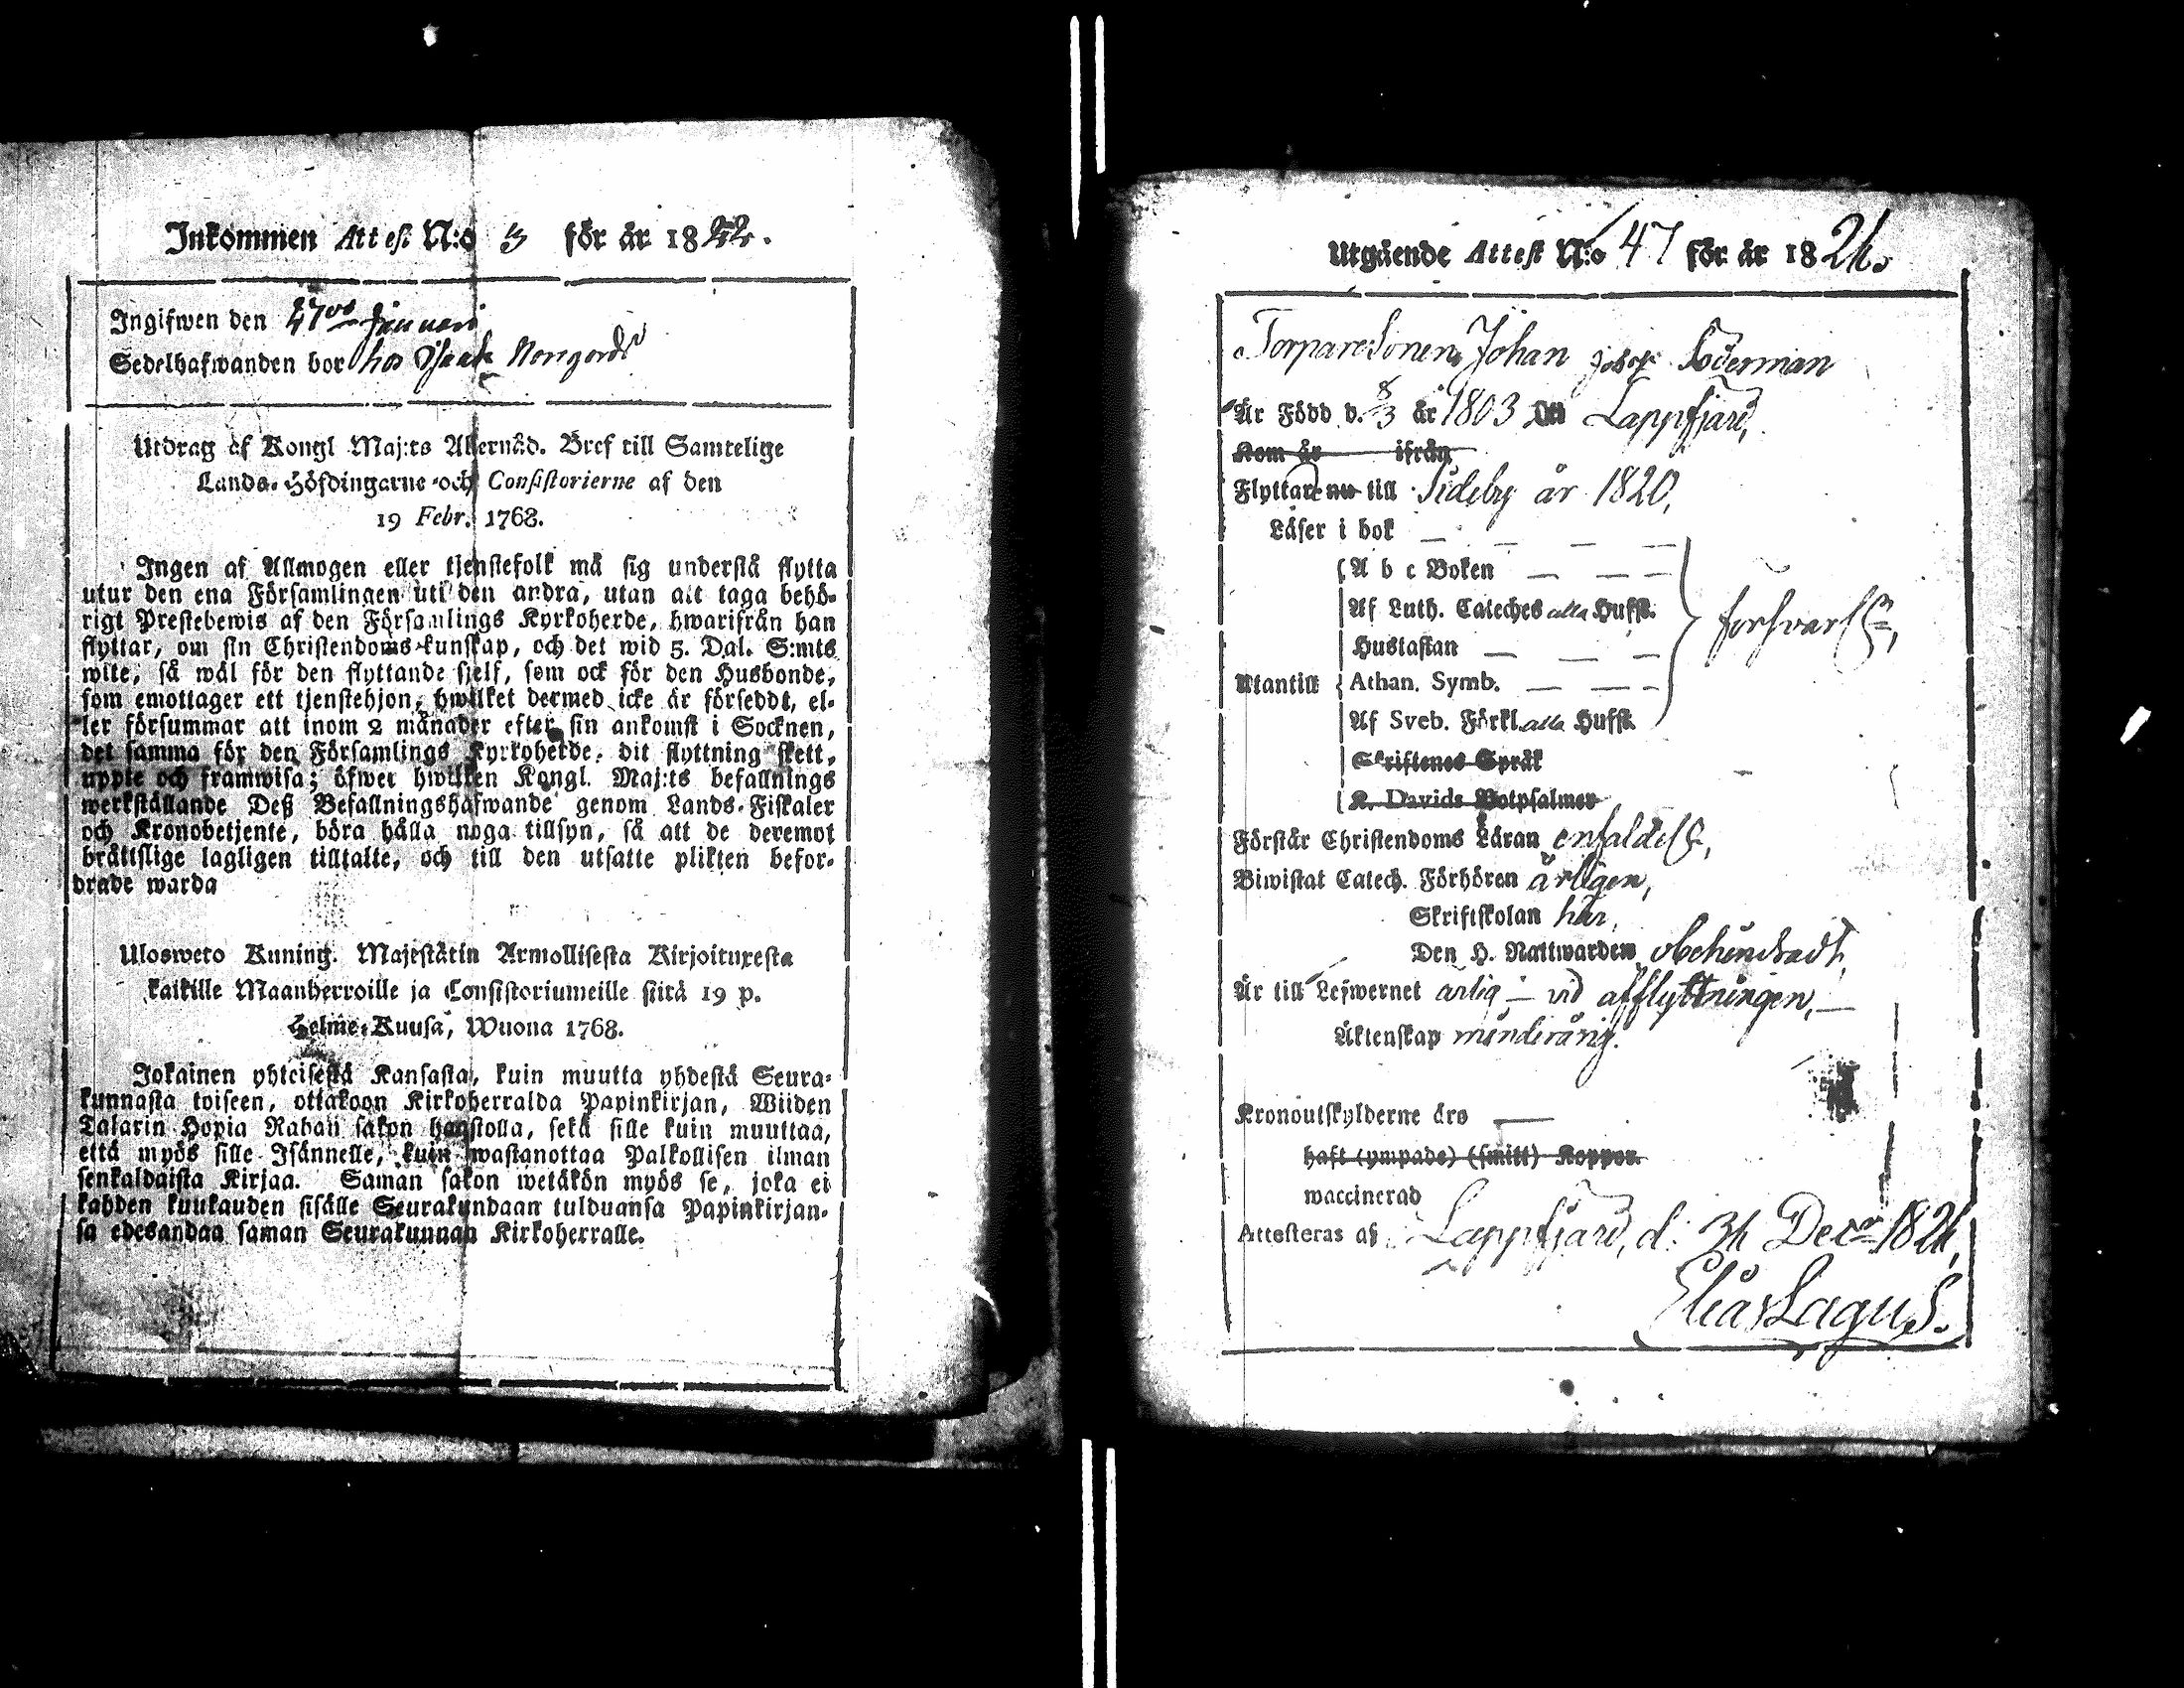 Inkommen Attest N:o 3 för år 1822.
Ingifwen den 27de Januari
Sedelhafwanden bor hos Isaak Norrgård
Utdrag af Kongl Maj:ts Allernåd. Bref till Samtelige
Lands-Höfdingarne och Consistorierne af den
19 Febr. 1768.
Ingen af Allmogen eller tjenstefolk må sig understå flytta
utur den ena Församlingen uti den andra, utan att taga behö-
rigt Prestebewis af den Församlings Kyrkoherde, hwarifrån han
flyttar, om sin Christendoms-kunskap, och det wid 5. Dal. S:mts
wite, så wäl för den flyttande sjelf, som ock för den Husbonde,
som emottager ett tjenstehjon, hwilket dermed icke är försedt, el-
ler försummar att inom 2 månader efter sin ankomst i Socknen,
det samma för den Församlings Kyrkoherde, dit flyttning skett,
uppte och framwisa; öfwer hwilken Kongl. Maj:ts befallnings
werkställande Deß Befallningshafwande genom Lands-Fiskaler
och Kronobetjente, böra hålla noga tillsyn, så att de deremot
bråttslige lagligen tilltalte, och till den utsatte plikten befor-
drade warda
Ulosweto Kuning. Majestätin Armollisesta Kirjoituxesta
kaikille Maanherroille ja Consistoriumeille siitä 19 p.
Helme-Kuusa, Wuona 1768.
Jokainen yhteisestä Kansasta, kuin muutta yhdestä Seura-
kunnasta toiseen, ottakoon Kirkoherralda Papinkirjan, Wiiden
Talarin Hopia Rahan sakon haastolla, sekä sille kuin muuttaa,
että myös sille Isännelle, kuin wastanottaa Palkollisen ilman
senkaldaista Kirjaa. Saman sakon wetäkön myös se, joka ei
kahden kuukauden sisälle Seurakundaan tulduansa Papinkirjan-
sa edesandaa saman Seurakunnan Kirkoherralle.
Utgående Attest N:o 47 för år 1821.
TorpareSonen Johan Söderman
Är Född d. 8/3 år 1803 Lappfjärd,
Kom år ifrån
Flyttar nu till Sideby år 1820,
Läser i bok — — — —
A b c Boken — — —
Af Luth. Cateches alla Hufst.
Hustaflan — — —
försvarl.
Utantill Athan. Symb. — — —
Af Sveb. Förkl. alla Hufst.
Skriftenes Språk
K. Davids Botpsalmer
Förstår Christendoms Läran enfaldel.,
Biwistat Catech. Förhören årligen,
Skriftskolan här,
Den H. Nattwarden obehindradt,
Är till Lefwernet ärlig — vid afflyttningen, —
Äktenskap minderårig.
Kronoutskylderne äro —
haft (ympade) (smitt) Koppor.
waccinerad
Attesteras af Lappfjärd, d: 31 Decr 1821,
Elias Lagus.